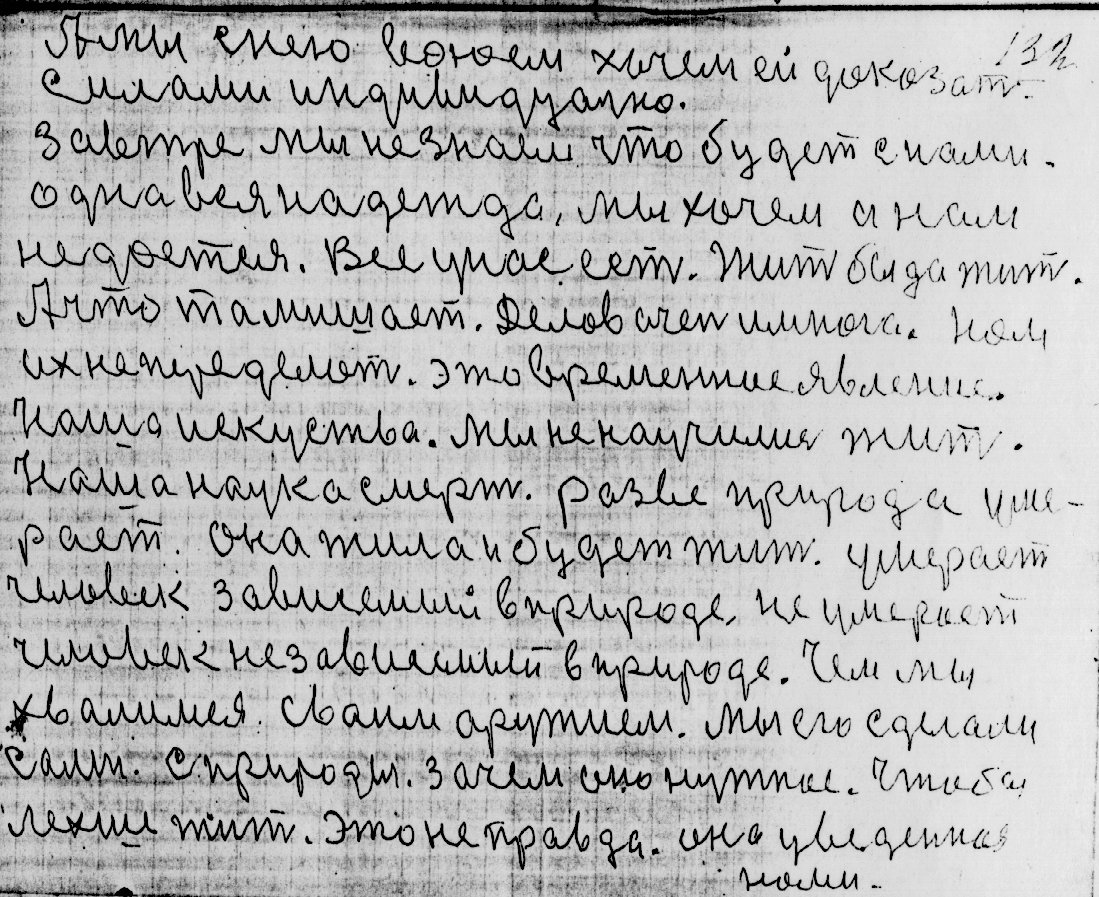 132
А мы с нею воюем хочем ей доказат.
Силами индивидуално.
Завтре мы не знаем что будет с нами.
одна вся надежда, мы хочем а нам
не доется. Все у нас ест. Жит бы да жит.
А что та мишает. Делов очен и многа. Нам
их не переделат. Это временные явление.
Наша искуства. Мы не научилис жит.
Наша наука смерт. Разве природа уме-
рает. Она жила и будет жит. умерает
человек зависемый в природе, не умерает
человек независемый в природе. Чем мы
хвалимся. Сваим аружием. Мы его сделали
сами. С природы. Зачем оно нужное. Чтобы
лехше жит. Это не правда. она уведенная
нами.